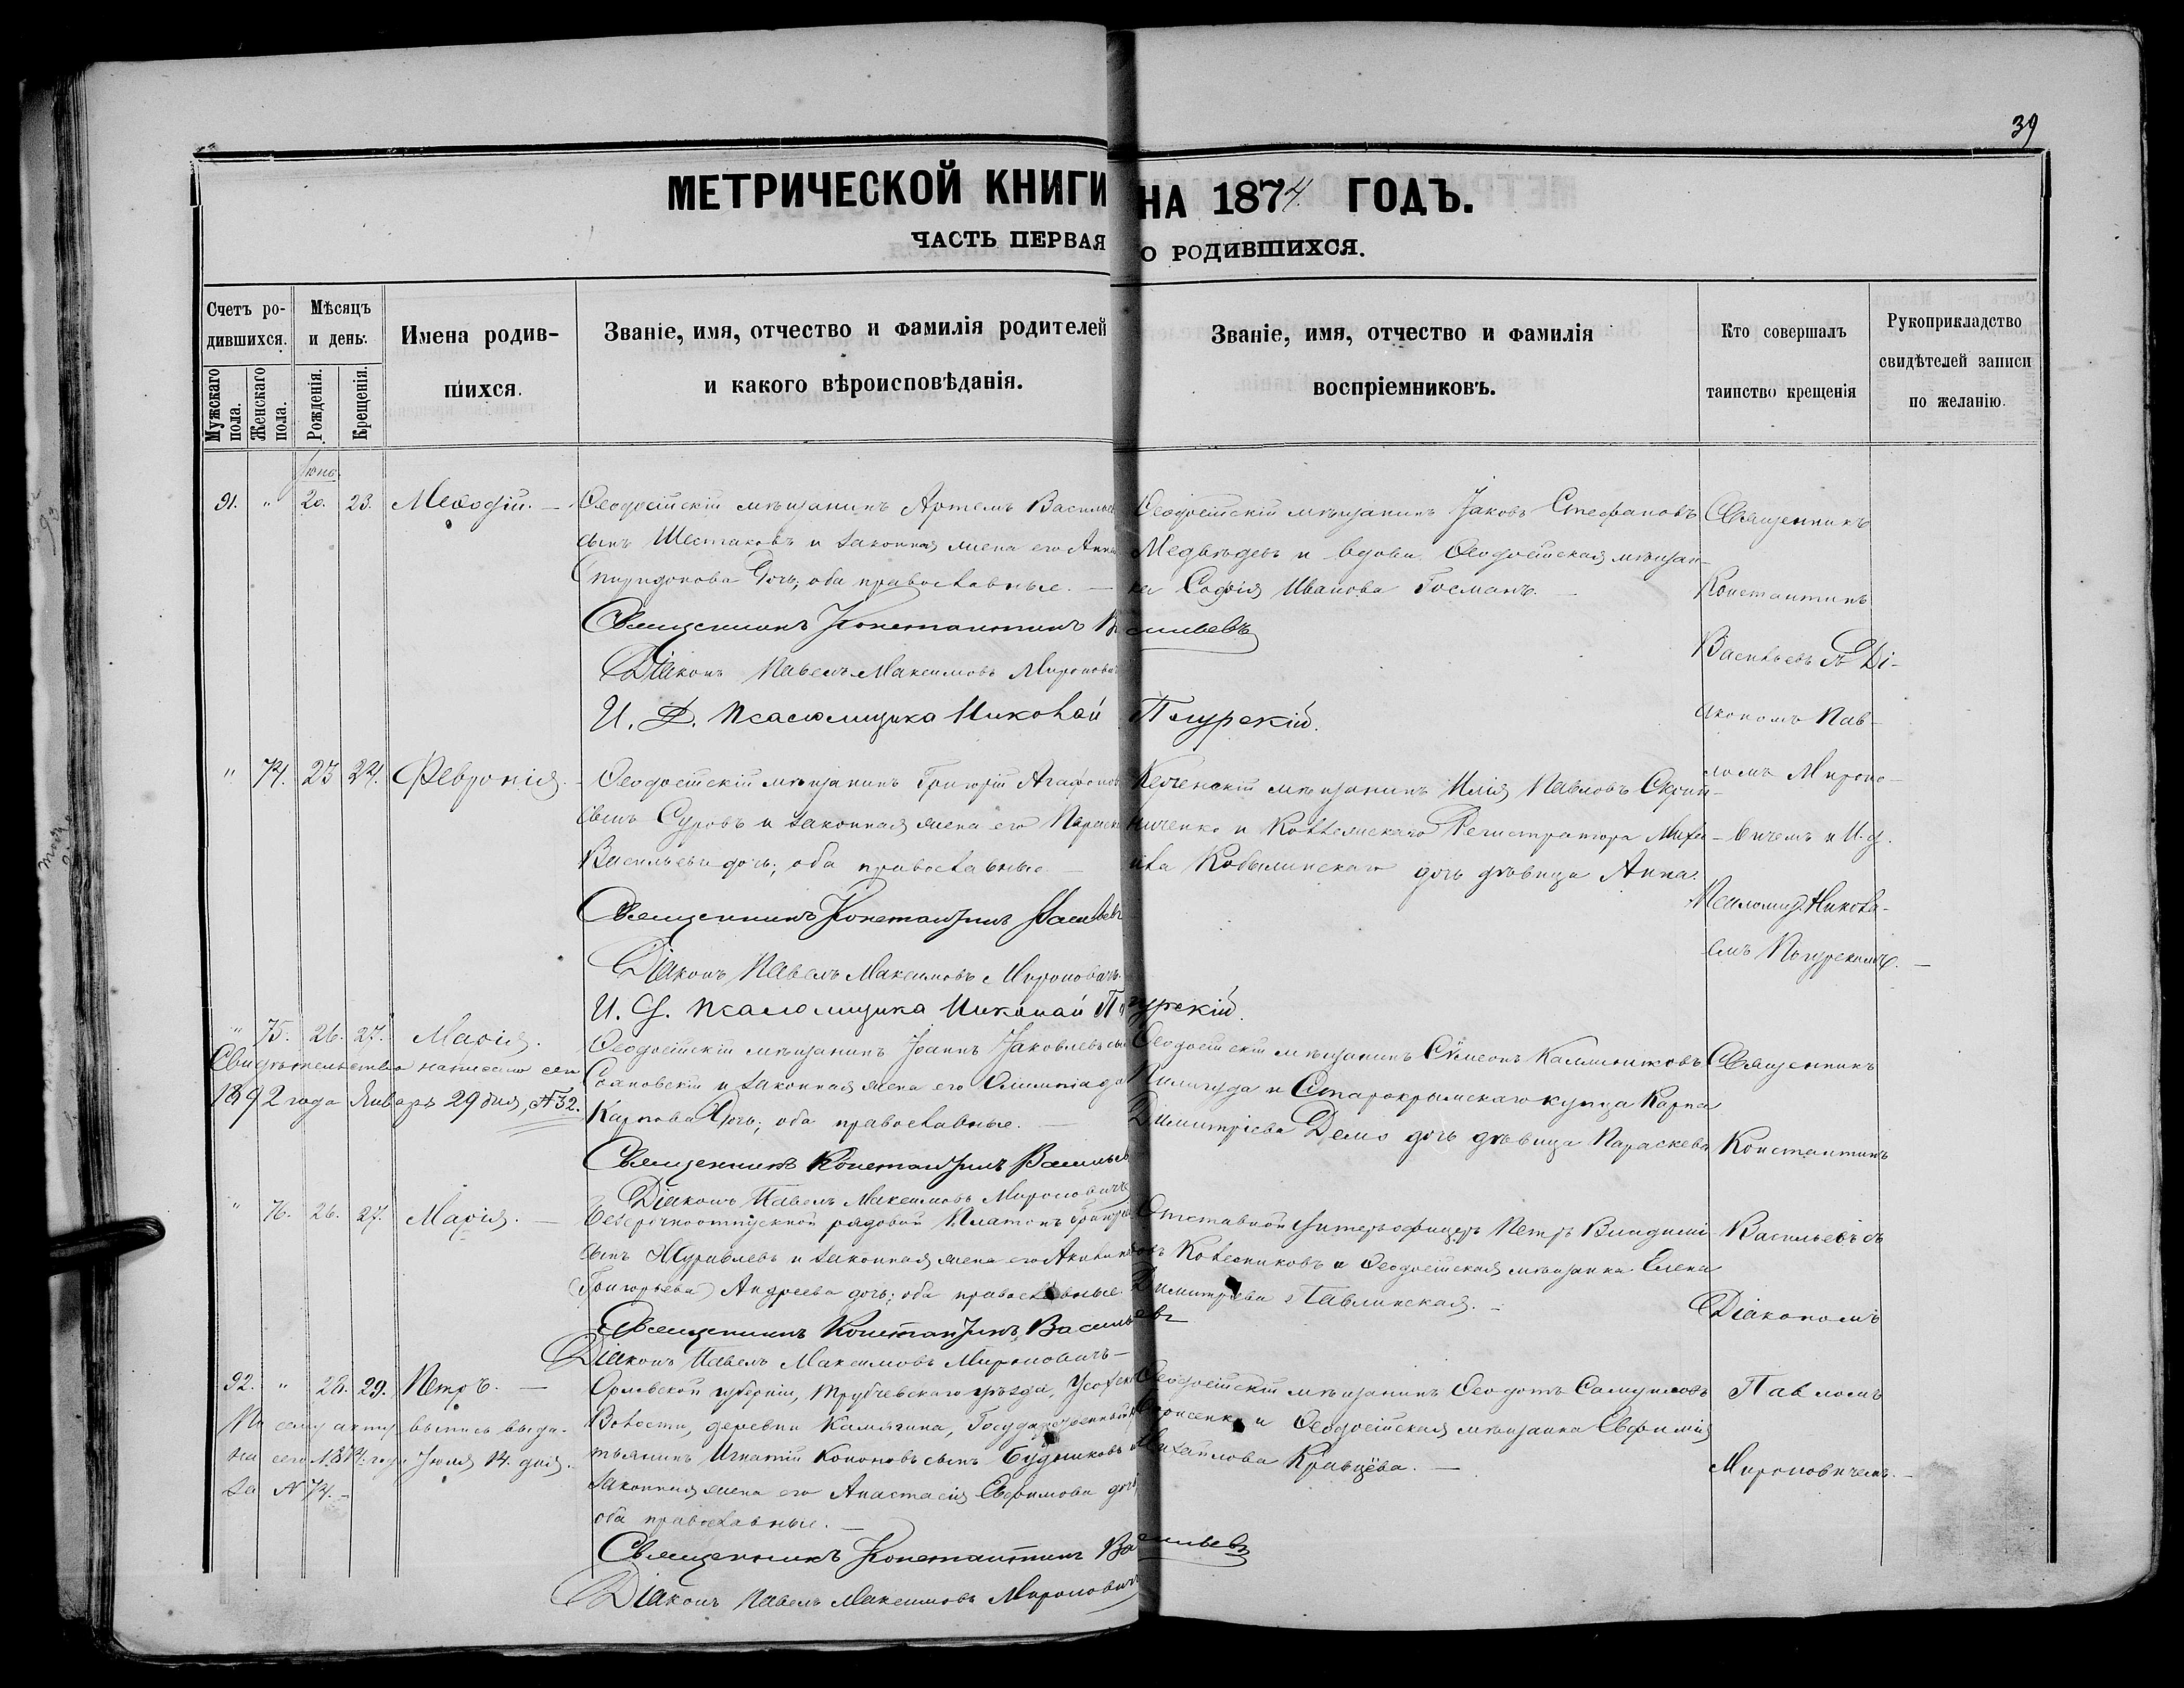 39
МЕТРИЧЕСКОЙ КНИГИ НА 1874 ГОДЪ.
ЧАСТЬ ПЕРВАЯ О РОДИВШИХСЯ.
Счетъ ро-
дившихся.
Мужскаго пола.
Женскаго пола.
Мѣсяцъ
и день.
Рожденія.
Крещенія.
Имена родив-
шихся.
Званіе, имя, отчество и фамилія родителей
и какого вѣроисповѣданія.
Званіе, имя, отчество и фамилія
воспріемниковъ.
Кто совершалъ
таинство крещенія
Рукоприкладство
свидѣтелей записи
по желанію.
Іюнь
91. " 20. 23. Меѳодій. —
Ѳеодосійскій мѣщанинъ Артемъ Васильевъ
сынъ Шестаковъ и законная жена его Анна
Спиридонова дочь; оба православные. —
Ѳеодосійскій мѣщанинъ Іаковъ Стефановъ
Медвѣдевъ и вдова Ѳеодосійская мѣщан-
ка Софія Иванова Госманъ. —
Священникъ
Константинъ
Васильевъ съ Ді-
акономъ Пав-
ломъ Мироно-
вичемъ и И. д.
Псаломщ. Никола-
емъ Пгурскимъ. —
Священникъ Константинъ Васильевъ
Діаконъ Павелъ Максимовъ Мироновичъ
И. Д. Псаломщика Николай Пгурскій.
" 74. 23 24. Февронія. —
Ѳеодосійскій мѣщанинъ Григорій Агафоновъ
сынъ Суровъ и законная жена его Параскева
Васильева дочь; оба православные —
Керченскій мѣщанинъ Илія Павловъ Скрип-
ниченко и Коллежскаго Регистратора Миха-
ила Кобылинскаго дочь дѣвица Анна.
Священникъ Константинъ Васильевъ
Діаконъ Павелъ Максимовъ Мироновичъ
И. д. Псаломщика Николай Пгурскій.
" 75. 26. 27. Марія.
Свидѣтельство написано сего
1892 года Январь 29 дня, №32.
Ѳеодосійскій мѣщанинъ Іоаннъ Іаковлевъ сынъ
Сохновскій и законная жена его Олимпіада
Карпова дочь; оба православные. —
Ѳеодосійскій мѣщанинъ Сѵмеонъ Каллиниковъ
и Старокрымскаго купца Карпа
Димитріева Демо дочь дѣвица Параскева
Священникъ
Константинъ
Васильевъ съ
Діакономъ
Павломъ
Мироновичемъ. —
Священникъ Константинъ Васильевъ
Діаконъ Павелъ Максимовъ Мироновичъ
" 76. 26. 27. Марія. —
Безсрочноотпускной рядовой Платонъ Григорьевъ
сынъ Журавлевъ и законная жена его Акилина
(Григорьева) Андреева дочь; оба православные.
Отставной Унтеръ-офицеръ Петръ Владимі-
ровъ Колесниковъ и Ѳеодосійская мѣщанка Елена
Димитріева Павлинская. —
Священникъ Константинъ Васильевъ
Діаконъ Павелъ Максимовъ Мироновичъ —
92. " 28. 29. Петръ. —
По сему акту выпись выда-
на сего 1874 года Іюля 14. дня.
за № 74. —
Орловской губерніи, Трубчевскаго уѣзда,
Волости, деревни Калягина, Государственный кре-
стьянинъ Игнатій Кононовъ сынъ Будниковъ и
законная жена его Анастасія Евфимова дочь
оба православные. —
Ѳеодосійскій мѣщанинъ Ѳеодотъ Самуиловъ
и Ѳеодосійская мѣщанка Евфимія
Михайлова Кравцёва. —
Священникъ Константинъ Васильевъ
Діаконъ Павелъ Максимовъ Мироновичъ